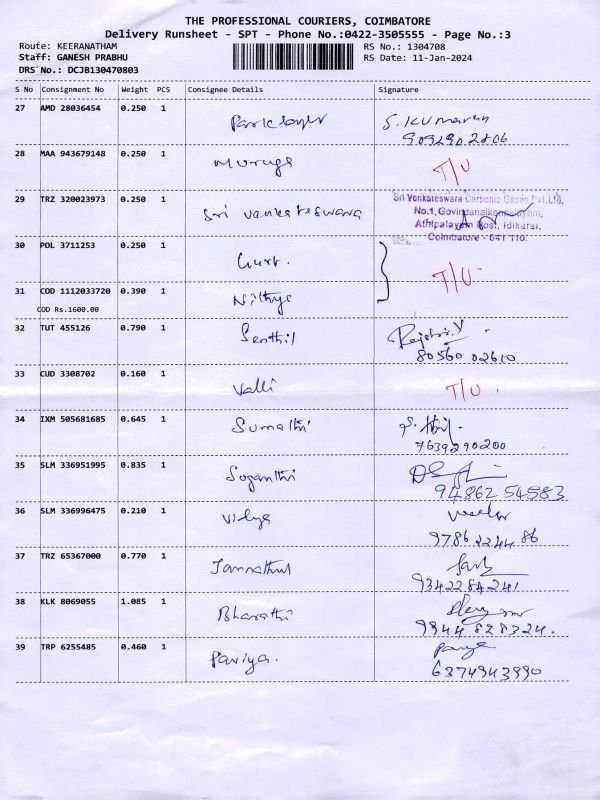 THE PROFESSIONAL COURIERS, COIMBATORE
Delivery Runsheet - SPT - Phone No.:0422-3505555 - Page No.:3
Route: KEERANATHAM RS No.: 1304708
Staff: GANESH PRABHU RS Date: 11-Jan-2024
DRS No.: DCJB130470803
S No Consignment No Weight PCS Consignee Details Signature
27 AMD 28036454 0.250 1 S. Kumaran
9092902806
28 MAA 943679148 0.250 1 Muruga T/U
29 TRZ 320023973 0.250 1 Sri Venkateswara
Sri Venkateswara Carbonic Gases Pvt.Ltd,
No.1, Govindanaikenpalayam,
Athipalayam Post, Idikarai,
Coimbatore - 641 110.
30 POL 3711253 0.250 1 T/U
31 COD 1112033720 0.390 1 Nithya
COD Rs.1600.00
32 TUT 455126 0.790 1 Senthil
80560 02610
33 CUD 3308702 0.160 1 Valli T/U
34 IXM 505681685 0.645 1 Sumathi
7639290200
35 SLM 336951995 0.835 1 Suganthi
94862 54583
36 SLM 336996475 0.210 1 Vidya
9786 2244 86
37 TRZ 65367000 0.770 1 Jannathul
9342284241
38 KLK 8069055 1.085 1 Bharathi
9344828324.
39 TRP 6255485 0.460 1 Paviya.
6374943990